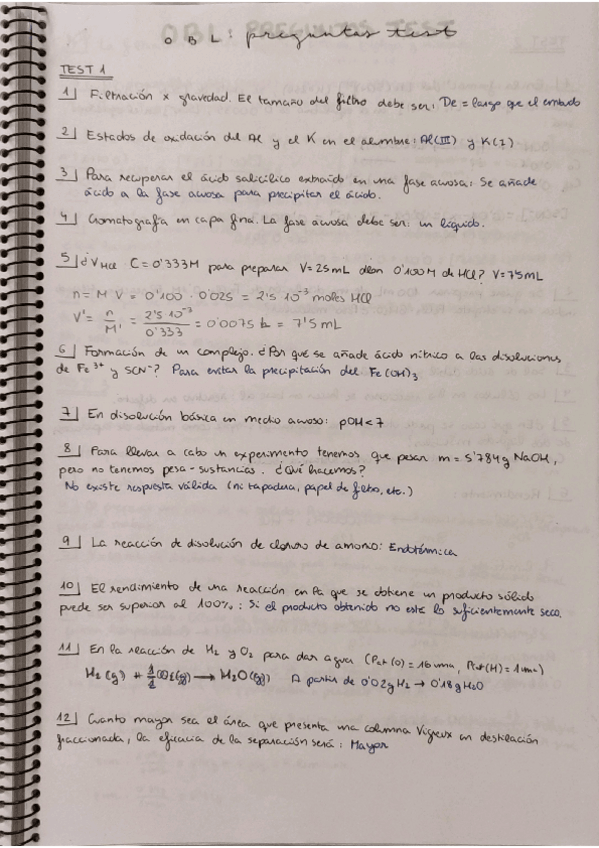 OBL: preguntas test
TEST 1
1| Filtración x gravedad. El tamaño del filtro debe ser: De = largo que el embudo
2| Estados de oxidación del Al y el K en el alumbre: Al(III) y K(I)
3| Para recuperar el ácido salicílico extraído en una fase acuosa: Se añade
ácido a la fase acuosa para precipitar el ácido.
4| Cromatografía en capa fina. La fase acuosa debe ser: un líquido.
5| ¿V HCl C = 0'333M para preparar V = 25mL dson 0'100M de HCl? V = 7'5mL
n = M V = 0'100 · 0'025 = 2'5 10⁻³ moles HCl
V' = n/M' = 2'5 10⁻³/0'333 = 0'0075 L = 7'5 mL
6| Formación de un complejo. ¿Por qué se añade ácido nítrico a las disoluciones
de Fe³⁺ y SCN⁻? Para evitar la precipitación del Fe(OH)₃
7| En disolución básica en medio acuoso: pOH < 7
8| Para llevar a cabo un experimento tenemos que pesar m = 5'784g NaOH,
pero no tenemos pesa-sustancias. ¿Qué hacemos?
No existe respuesta válida (ni tapadera, papel de filtro, etc.)
9| La reacción de disolución de cloruro de amonio: Endotérmica
10| El rendimiento de una reacción en la que se obtiene un producto sólido
puede ser superior al 100%: Si el producto obtenido no esté lo suficientemente seco.
11| En la reacción de H₂ y O₂ para dar agua (Pat(O) = 16uma, Pat(H) = 1uma)
H₂(g) + 1/2 O₂(g) → H₂O(g) A partir de 0'02g H₂ → 0'18g H₂O
12| Cuanto mayor sea el área que presenta una columna Vigreux en destilación
fraccionada, la eficacia de la separación será: Mayor